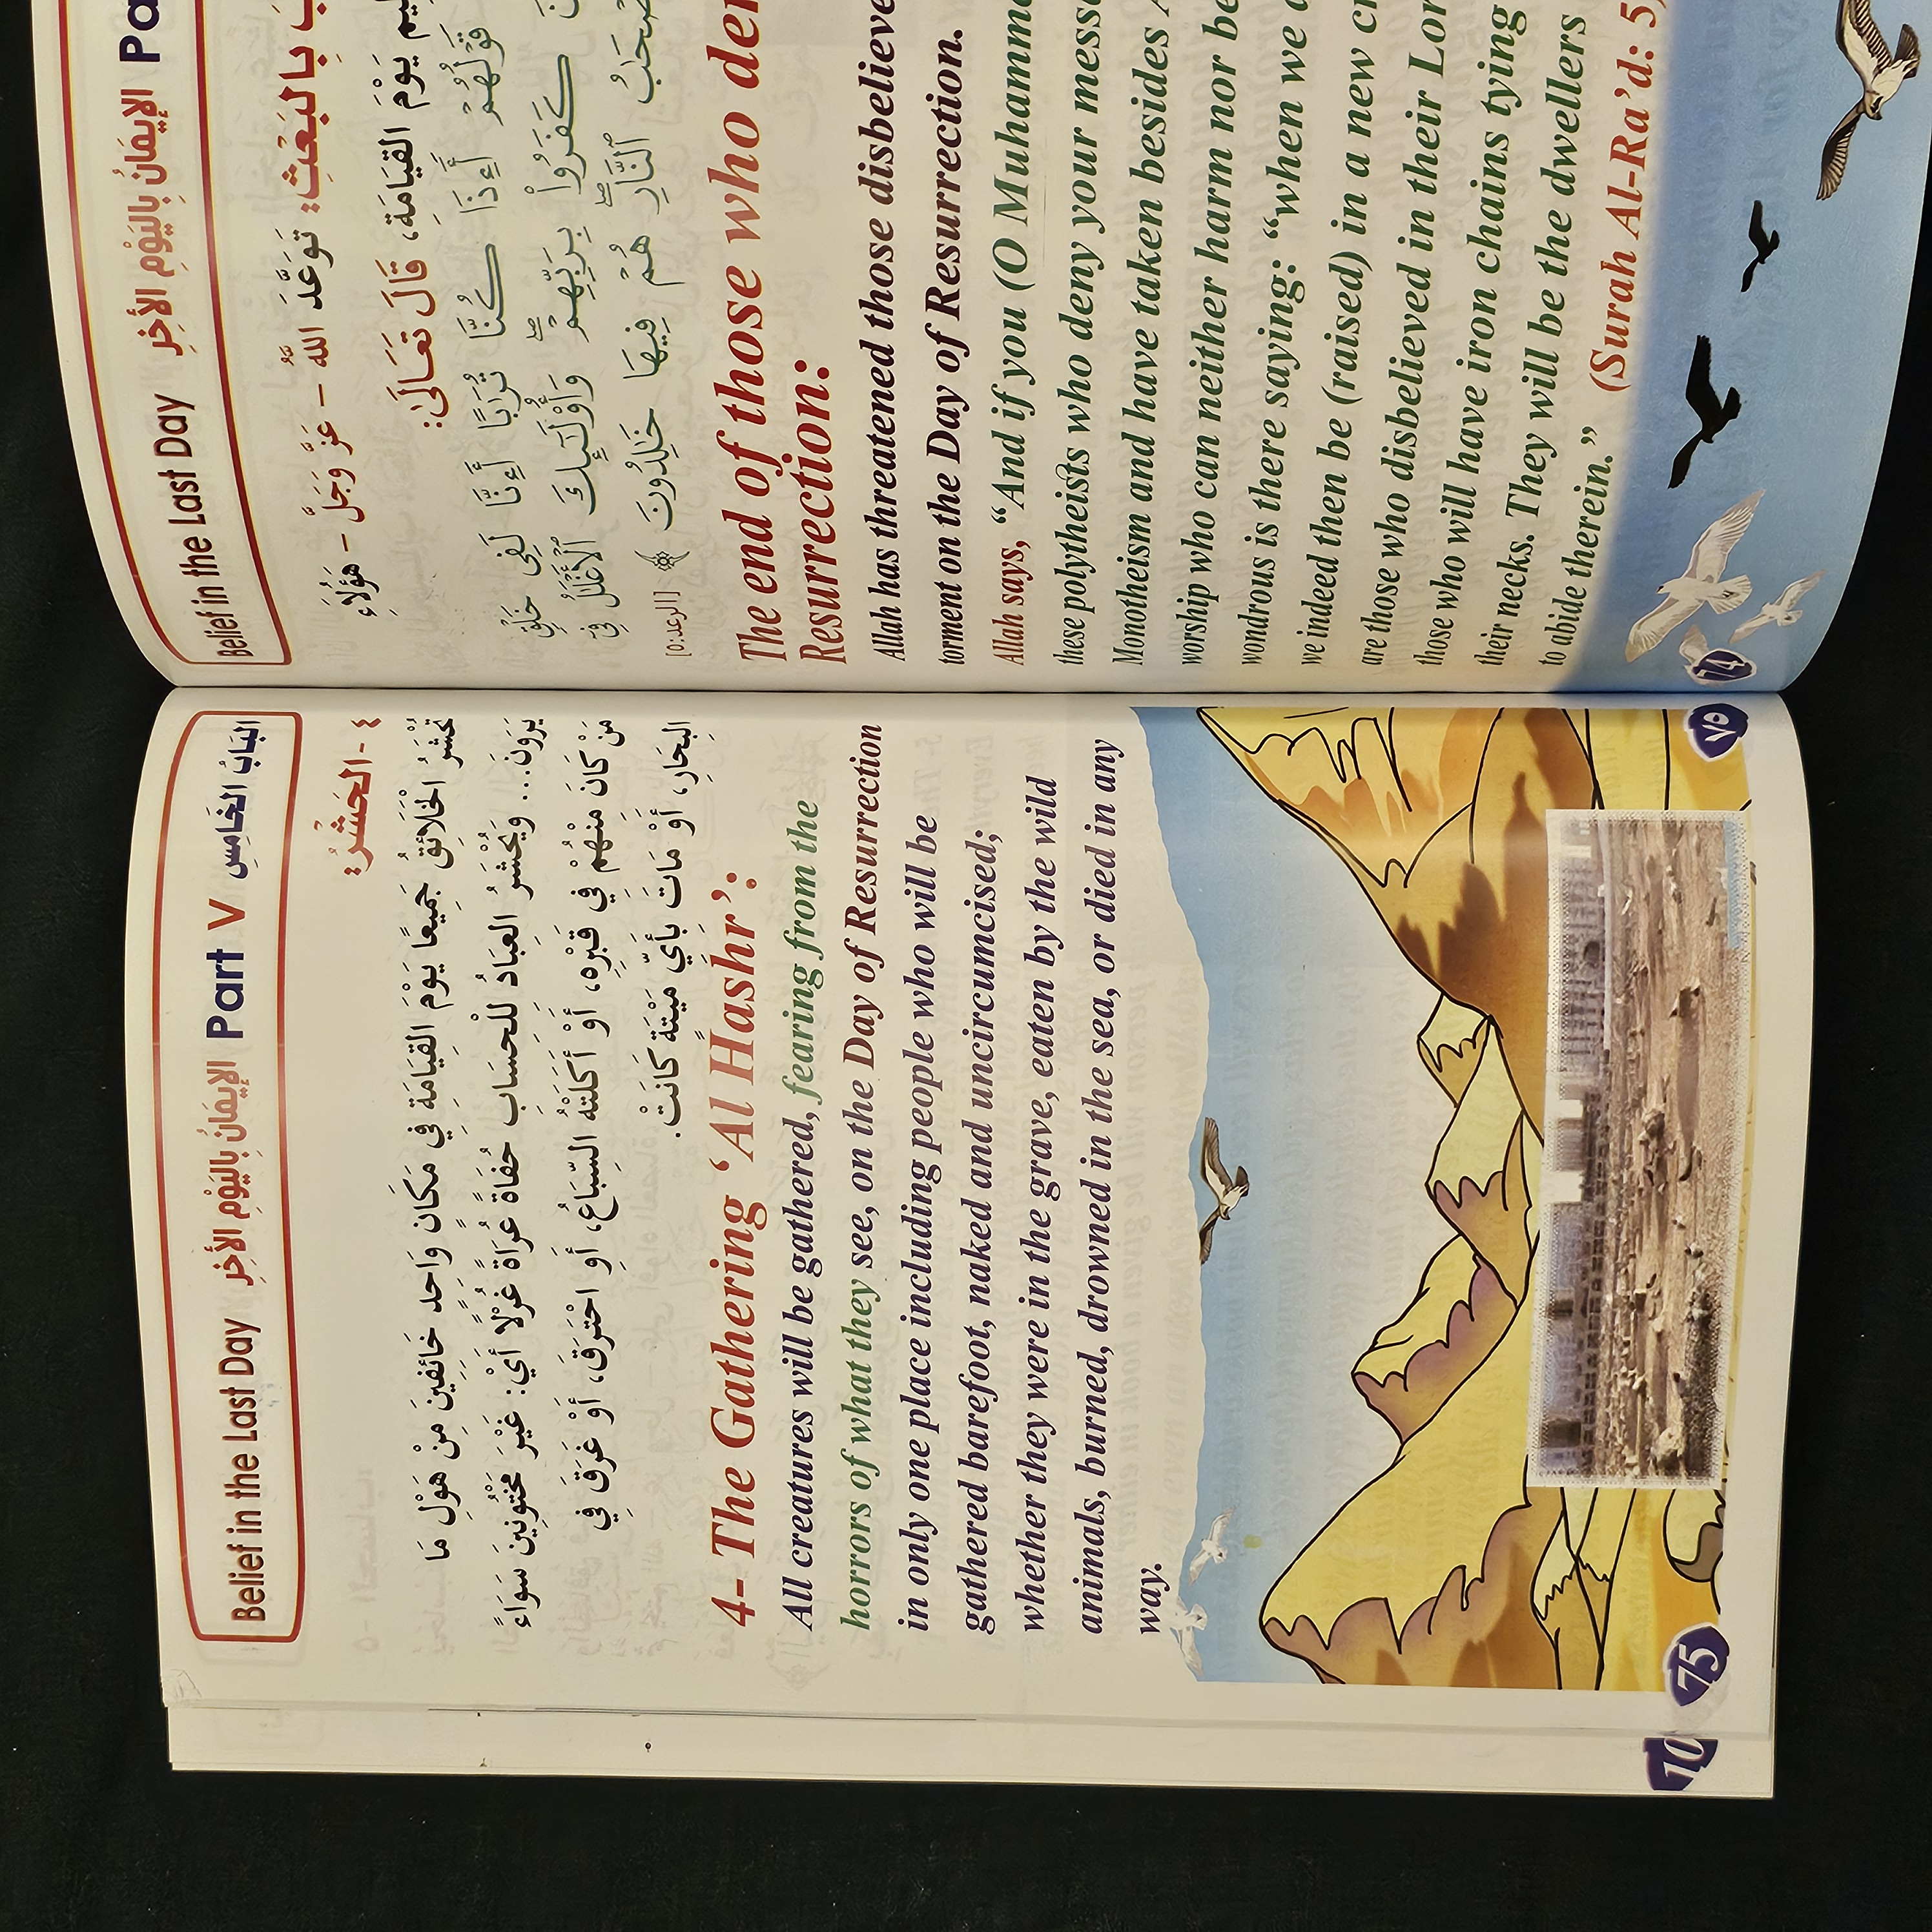 Belief in the Last Day الإِيمَانُ بِاليَوْمِ الآخِرِ
بِالبَعْثِ: تَوَعَّدَ الله – عَزَّ وَجَلَّ – هَؤُلَاءِ
يَوْمَ القِيَامَةِ، قَالَ تَعَالَى:
قَوْلُهُمْ أَءِذَا كُنَّا تُرَٰبًا أَءِنَّا لَفِى خَلْقٍ
كَفَرُواْ بِرَبِّهِمْ ۖ وَأُوْلَٰٓئِكَ ٱلْأَغْلَٰلُ فِىٓ
ٱلنَّارِ ۖ هُمْ فِيهَا خَٰلِدُونَ [الرعد:٥]
The end of those who
Resurrection:
Allah has threatened those
torment on the Day of Resurrection.
Allah says, “And if you (O
these polytheists who deny your
Monotheism and have taken besides
worship who can neither harm nor
wondrous is there saying: “when we
we indeed then be (raised) in a new
are those who disbelieved in their
those who will have iron chains tying
their necks. They will be the dwellers
to abide therein.”
(Surah Al-Ra’d: 5)
74
Belief in the Last Day الإِيمَانُ بِاليَوْمِ الآخِرِ Part V البَابُ الخَامِس
٤ - الحَشْرُ:
تُحْشَرُ الخَلَائِقُ جَمِيعًا يَوْمَ القِيَامَةِ فِي مَكَانٍ وَاحِدٍ خَائِفِينَ مِنْ هَوْلِ مَا
يَرَوْنَ... وَيُحْشَرُ العِبَادُ لِلْحِسَابِ حُفَاةً عُرَاةً غُرْلًا أَيْ: غَيْرَ مَخْتُونِينَ سَوَاءً
مَنْ كَانَ مِنْهُمْ فِي قَبْرِهِ، أَوْ أَكَلَتْهُ السِّبَاعُ، أَوِ احْتَرَقَ، أَوْ غَرِقَ فِي
البِحَارِ، أَوْ مَاتَ بِأَيِّ مَيْتَةٍ كَانَتْ.
4- The Gathering ‘Al Hashr’:
All creatures will be gathered, fearing from the
horrors of what they see, on the Day of Resurrection
in only one place including people who will be
gathered barefoot, naked and uncircumcised;
whether they were in the grave, eaten by the wild
animals, burned, drowned in the sea, or died in any
way.
75
٧٥
10